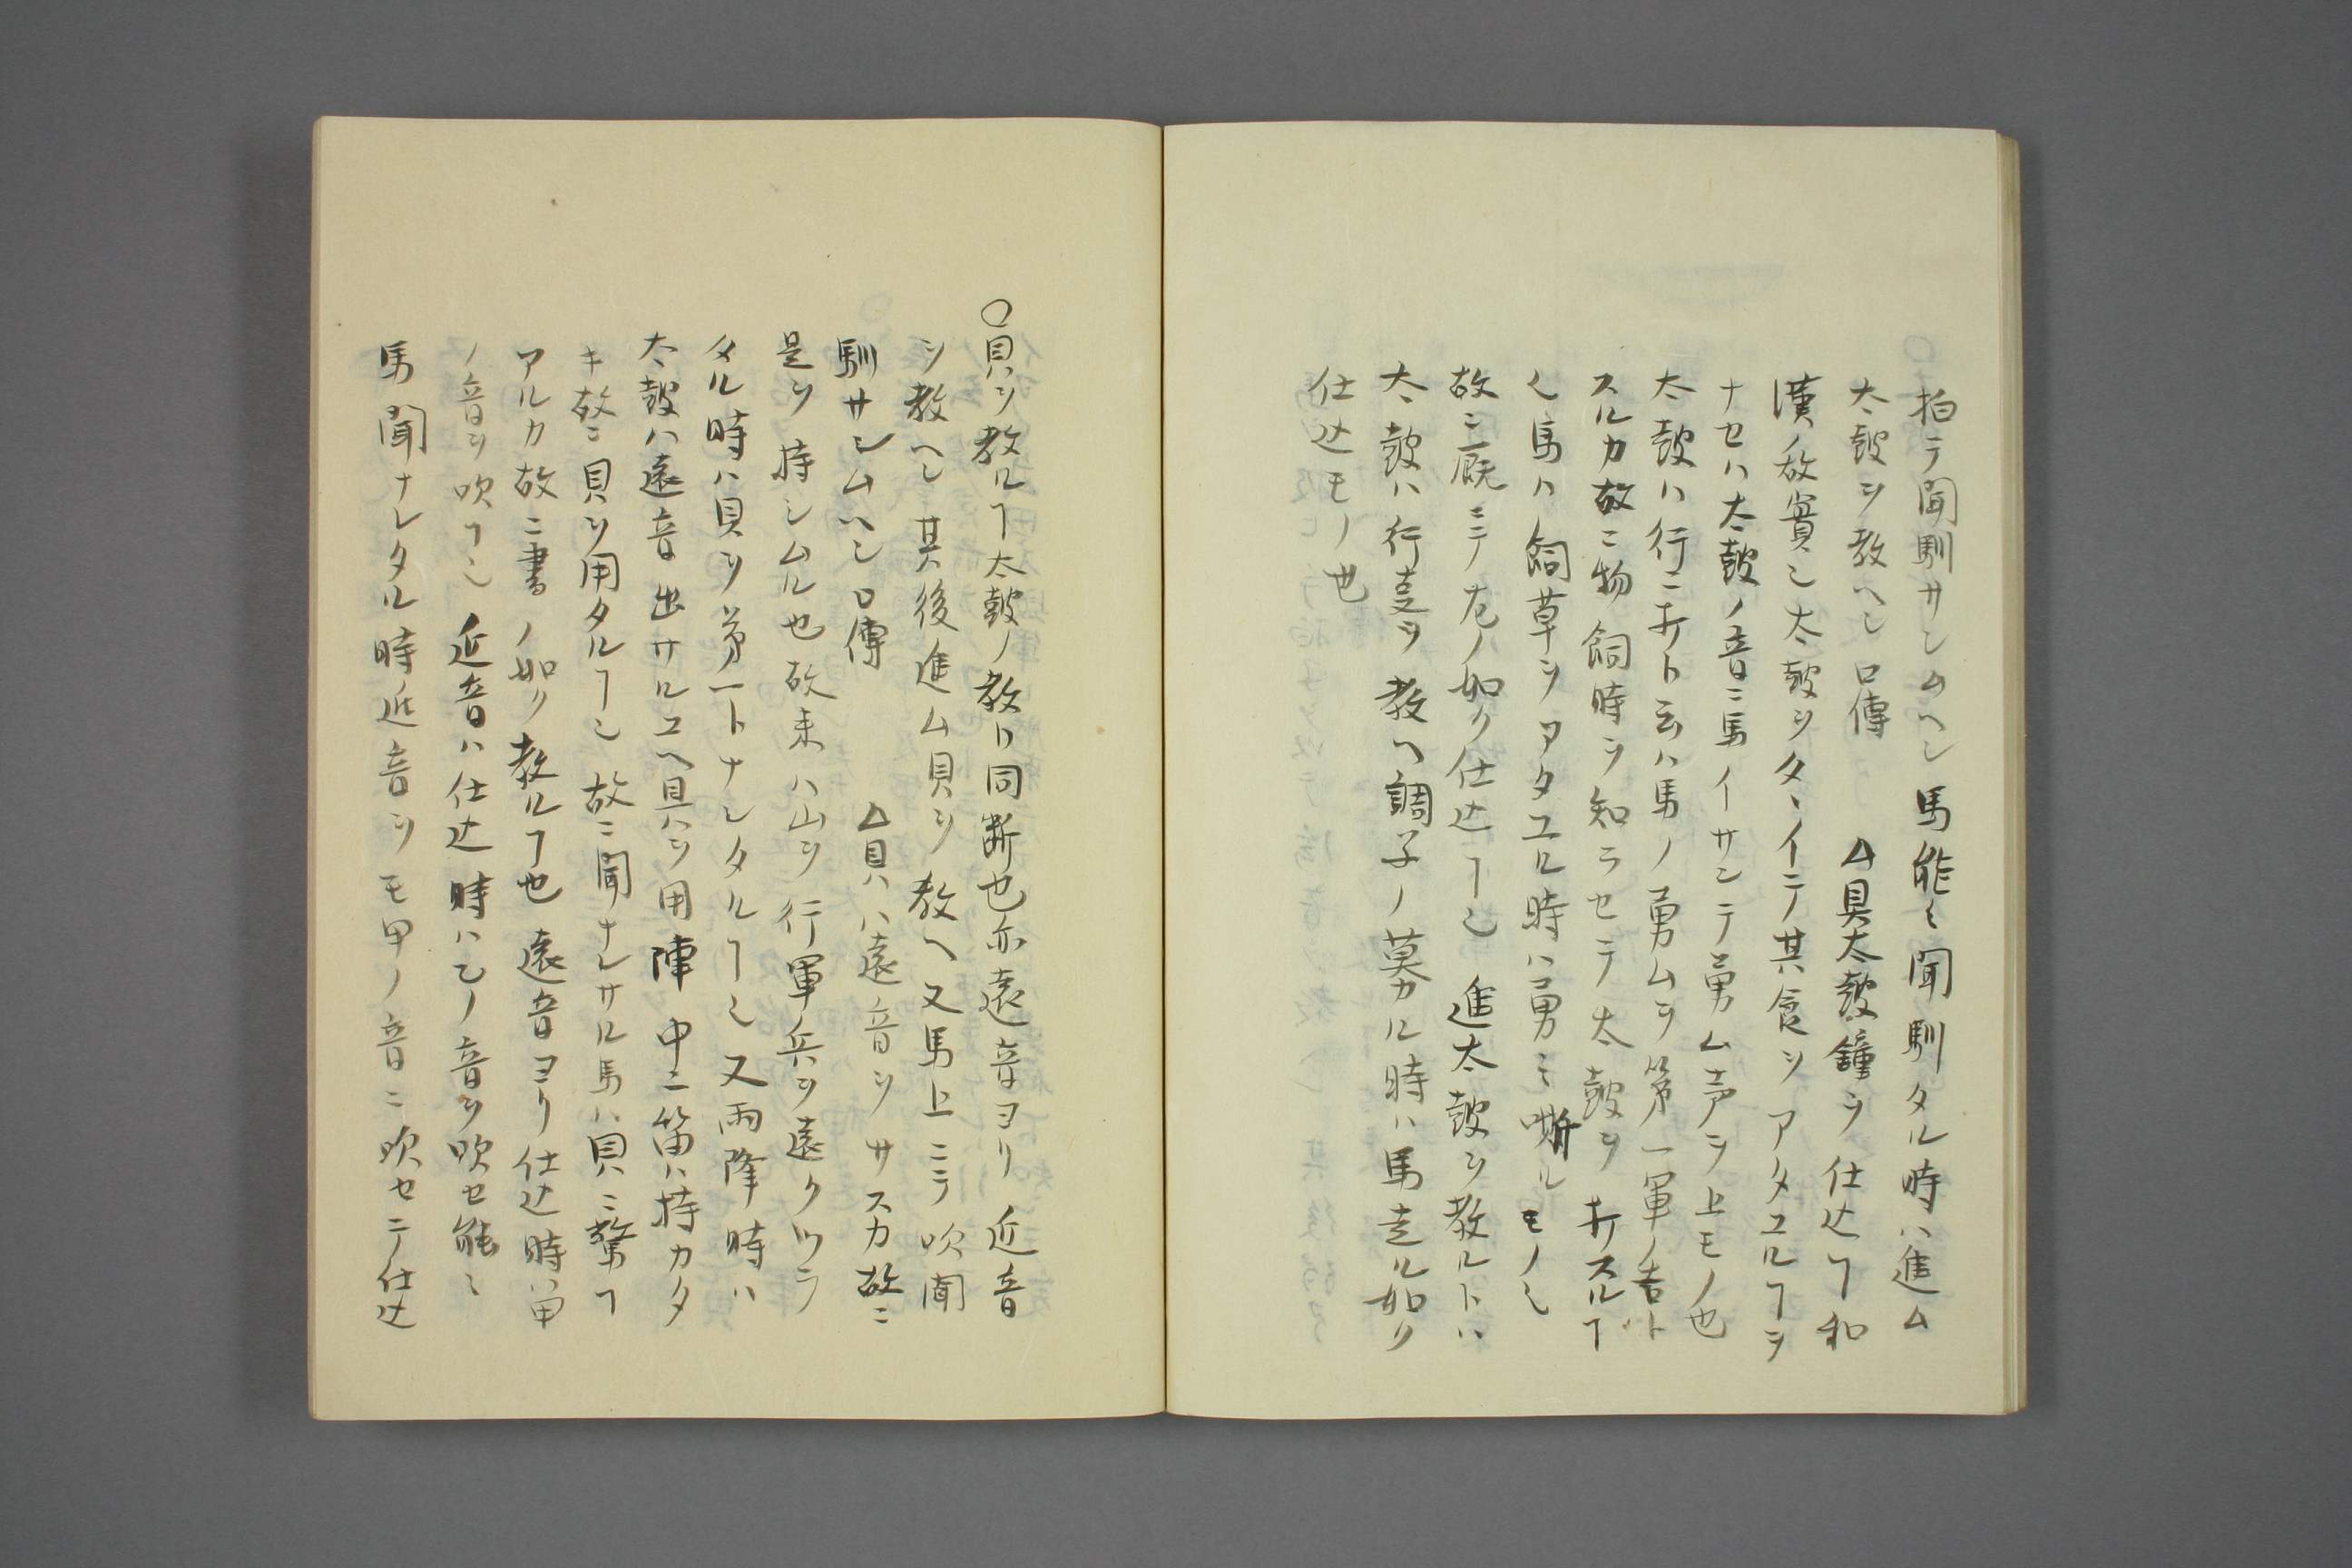 拍テ聞馴サシムヘシ馬能〻聞馴タル時ハ進ム
太皷ヲ教ヘシ口傳　△具太皷鐘ヲ仕込ヿ和
漢ノ故實也太皷ヲタヽイテ其食ヲアタユルヿヲ
ナセハ太皷ノ音ニ馬イサンテ勇ム声ヲ上モノ也
太皷ハ行ニ打ト云ハ馬ノ勇ムヲ第一軍ノ吉ト
スルカ故ニ物飼時ヲ知ラセテ太皷ヲ打スルヿ
也馬ハ飼草ヲアタユル時ハ勇ミ嘶ルモノ也
故ニ厩ニテ左ノ如ク仕込ヿ也進太皷ヲ教ルトハ
太皷ハ行支ヲ教ヘ調子ノ募ル時ハ馬走ル如ク
仕込モノ也
○貝ヲ教ルヿ太皷ノ教ト同断也亦遠音ヨリ近音
ヲ教ヘシ其後進ム貝ヲ教ヘ又馬上ニテ吹聞
馴サシムヘシ口傳　△貝ハ遠音ヲサスカ故ニ
是ヲ持シムル也故来ハ山ヲ行軍兵ヲ遠クツラ
タル時ハ貝ヲ第一トナシタルヿ也又雨降時ハ
太皷ハ遠音出サルユヘ貝ヲ用陣中ニ笛ハ持カタ
キ故ニ貝ヲ用タルヿ也故ニ聞ナレサル馬ハ貝ニ驚ヿ
アルカ故ニ書ノ如ク教ルヿ也遠音ヨリ仕込時ハ甲
ノ音ヲ吹ヿ也近音ハ仕込時ハ乙ノ音ヲ吹セ能〻
馬聞ナレタル時近音ヲモ甲ノ音ニ吹セテ仕込